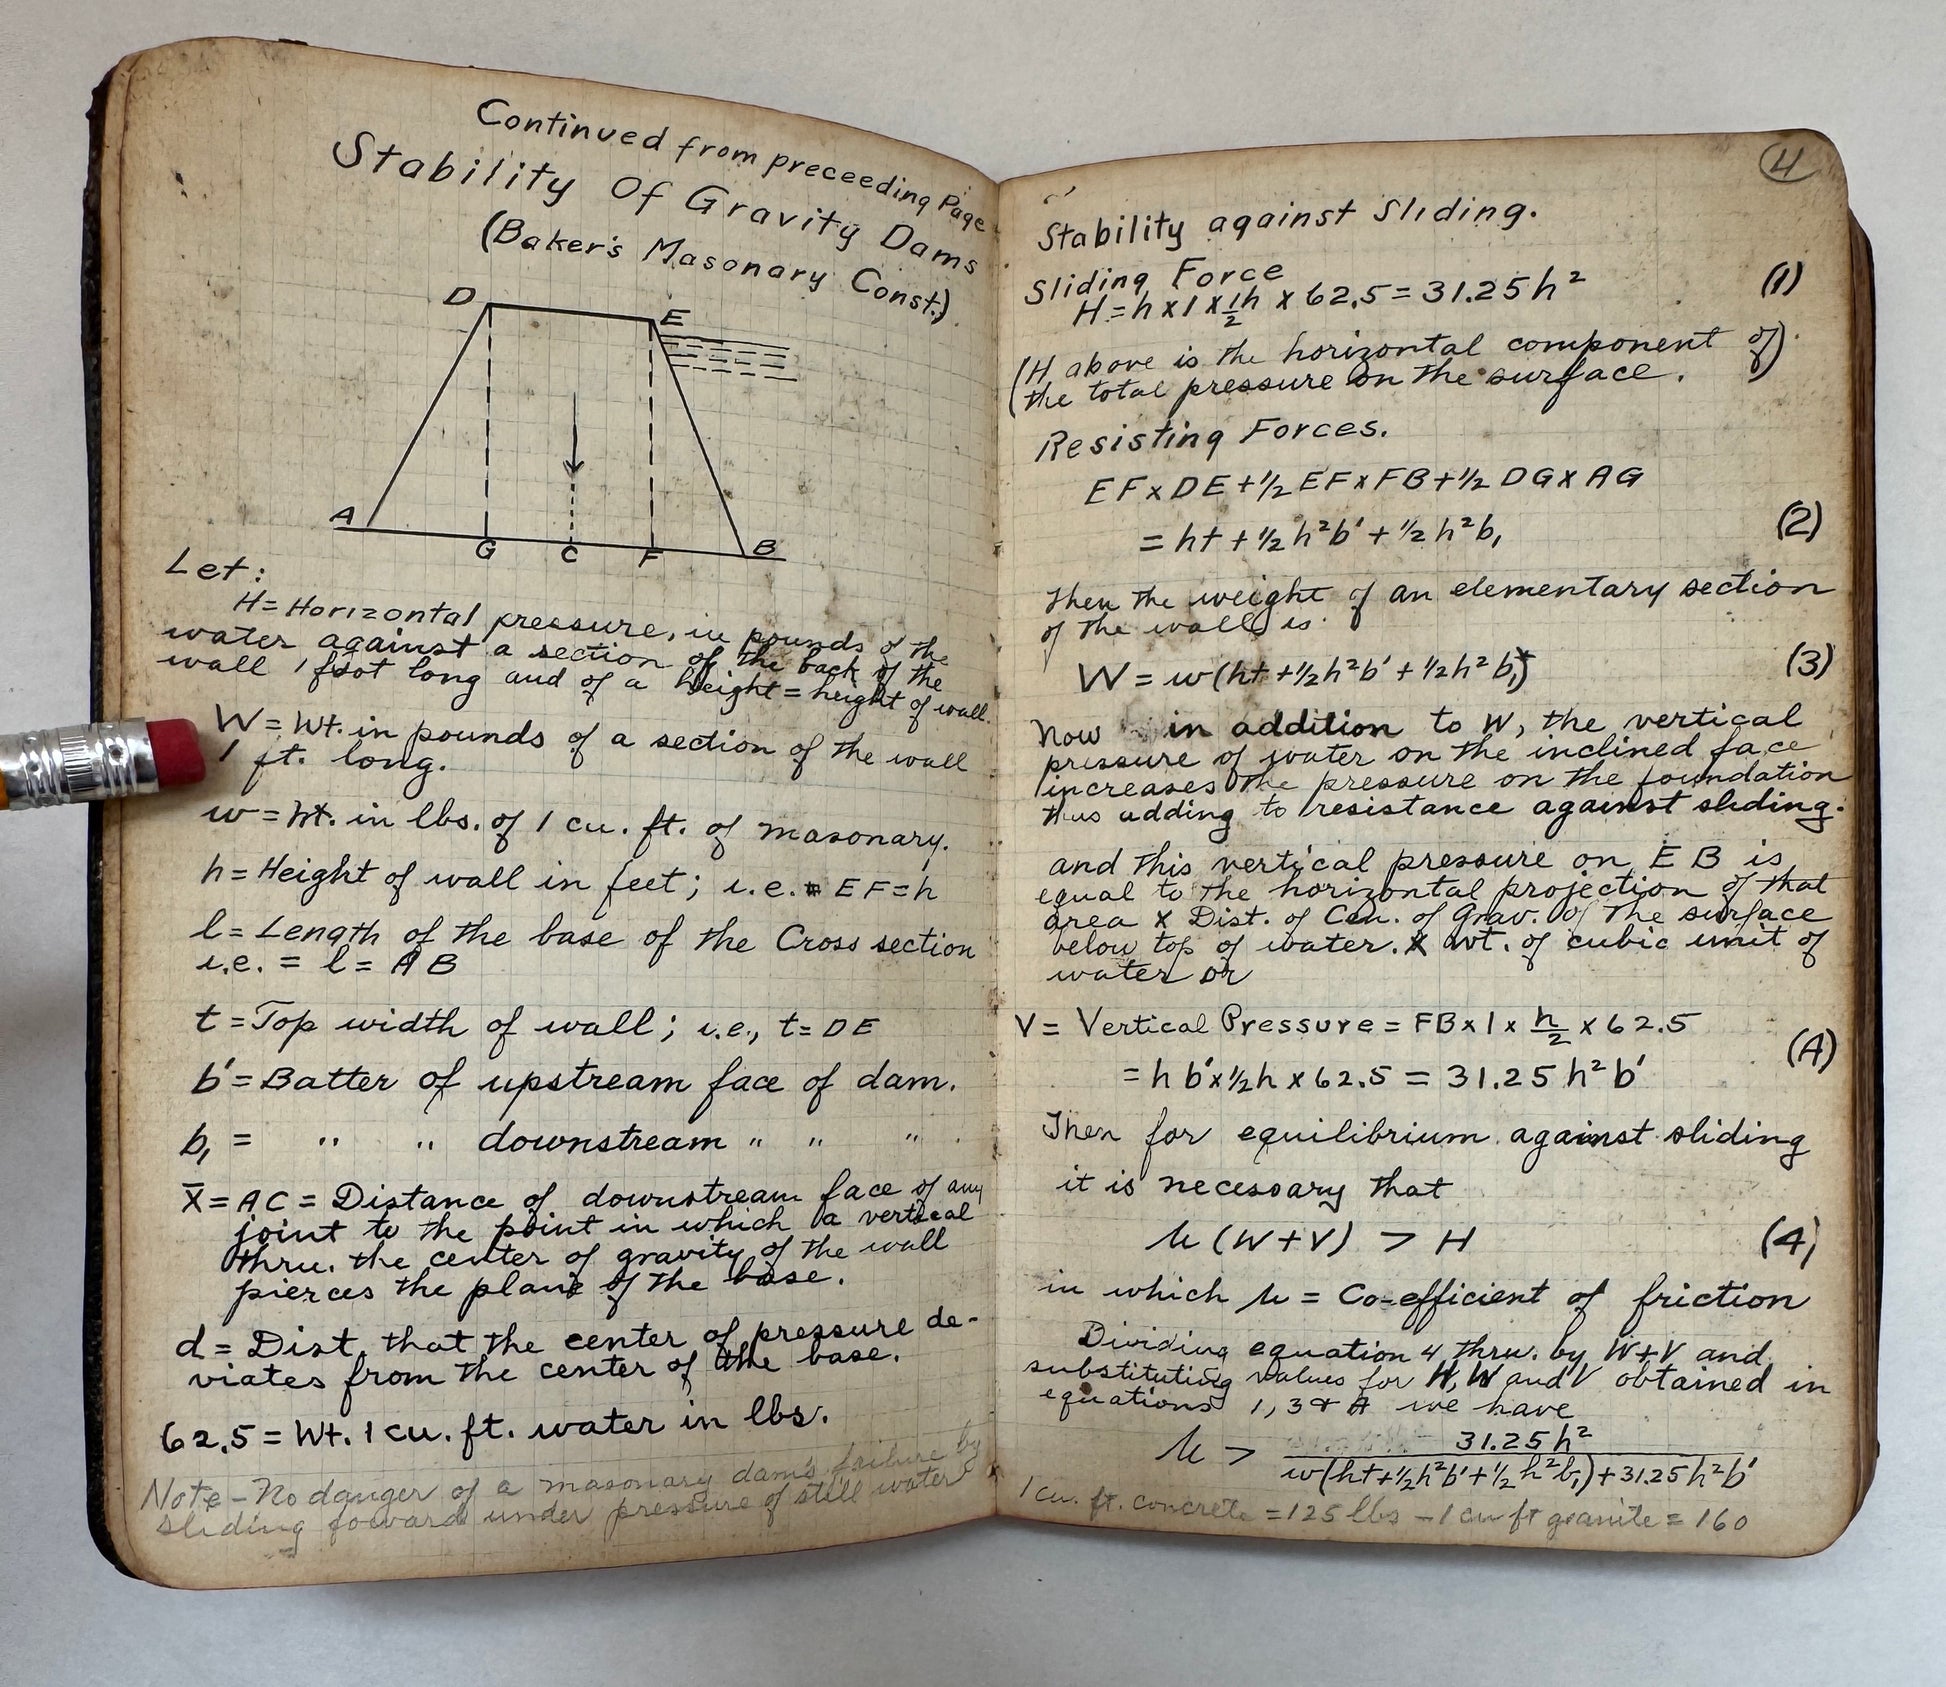 Continued from preceeding Page
Stability Of Gravity Dams
(Baker's Masonary Const.)
D
E
A
G
C
F
B
Let:
H = Horizontal pressure, in pounds of the
water against a section of the back of the
wall 1 foot long and of a height = height of wall.
W = Wt. in pounds of a section of the wall
1 ft. long.
w = Wt. in lbs. of 1 cu. ft. of masonary.
h = Height of wall in feet; i.e. EF = h
l = Length of the base of the Cross section
i.e. = l = AB
t = Top width of wall; i.e., t = DE
b' = Batter of upstream face of dam.
b₁ = " " downstream " " " .
x̄ = AC = Distance of downstream face of any
joint to the point in which a vertical
thru. the center of gravity of the wall
pierces the plane of the base.
d = Dist. that the center of pressure de-
viates from the center of the base.
62.5 = Wt. 1 cu. ft. water in lbs.
Note - No danger of a masonary dam's failure by
sliding forward under pressure of still water
4
Stability against Sliding.
Sliding Force
H = h x 1 x ½h x 62.5 = 31.25h² (1)
(H above is the horizontal component of)
(the total pressure on the surface.
Resisting Forces.
EF x DE + ½ EF x FB + ½ DG x AG
= ht + ½ h²b' + ½ h²b₁ (2)
Then the weight of an elementary section
of the wall is
W = w(ht + ½h²b' + ½h²b₁) (3)
Now in addition to W, the vertical
pressure of water on the inclined face
increases the pressure on the foundation
thus adding to resistance against sliding.
and this vertical pressure on EB is
equal to the horizontal projection of that
area x Dist. of Cen. of Grav. of the surface
below top of water. x wt. of cubic unit of
water or
V = Vertical Pressure = FB x 1 x h/2 x 62.5
(A)
= h b' x ½h x 62.5 = 31.25 h² b'
Then for equilibrium against sliding
it is necessary that
μ (W+V) > H (4)
in which μ = Co-efficient of friction
Dividing equation 4 thru. by W+V and
substituting values for H, W and V obtained in
equations 1, 3 & A we have
μ > 31.25 h² / w(ht+½h²b'+½h²b₁)+31.25h²b'
1 cu. ft. concrete = 125 lbs - 1 cu ft granite = 160